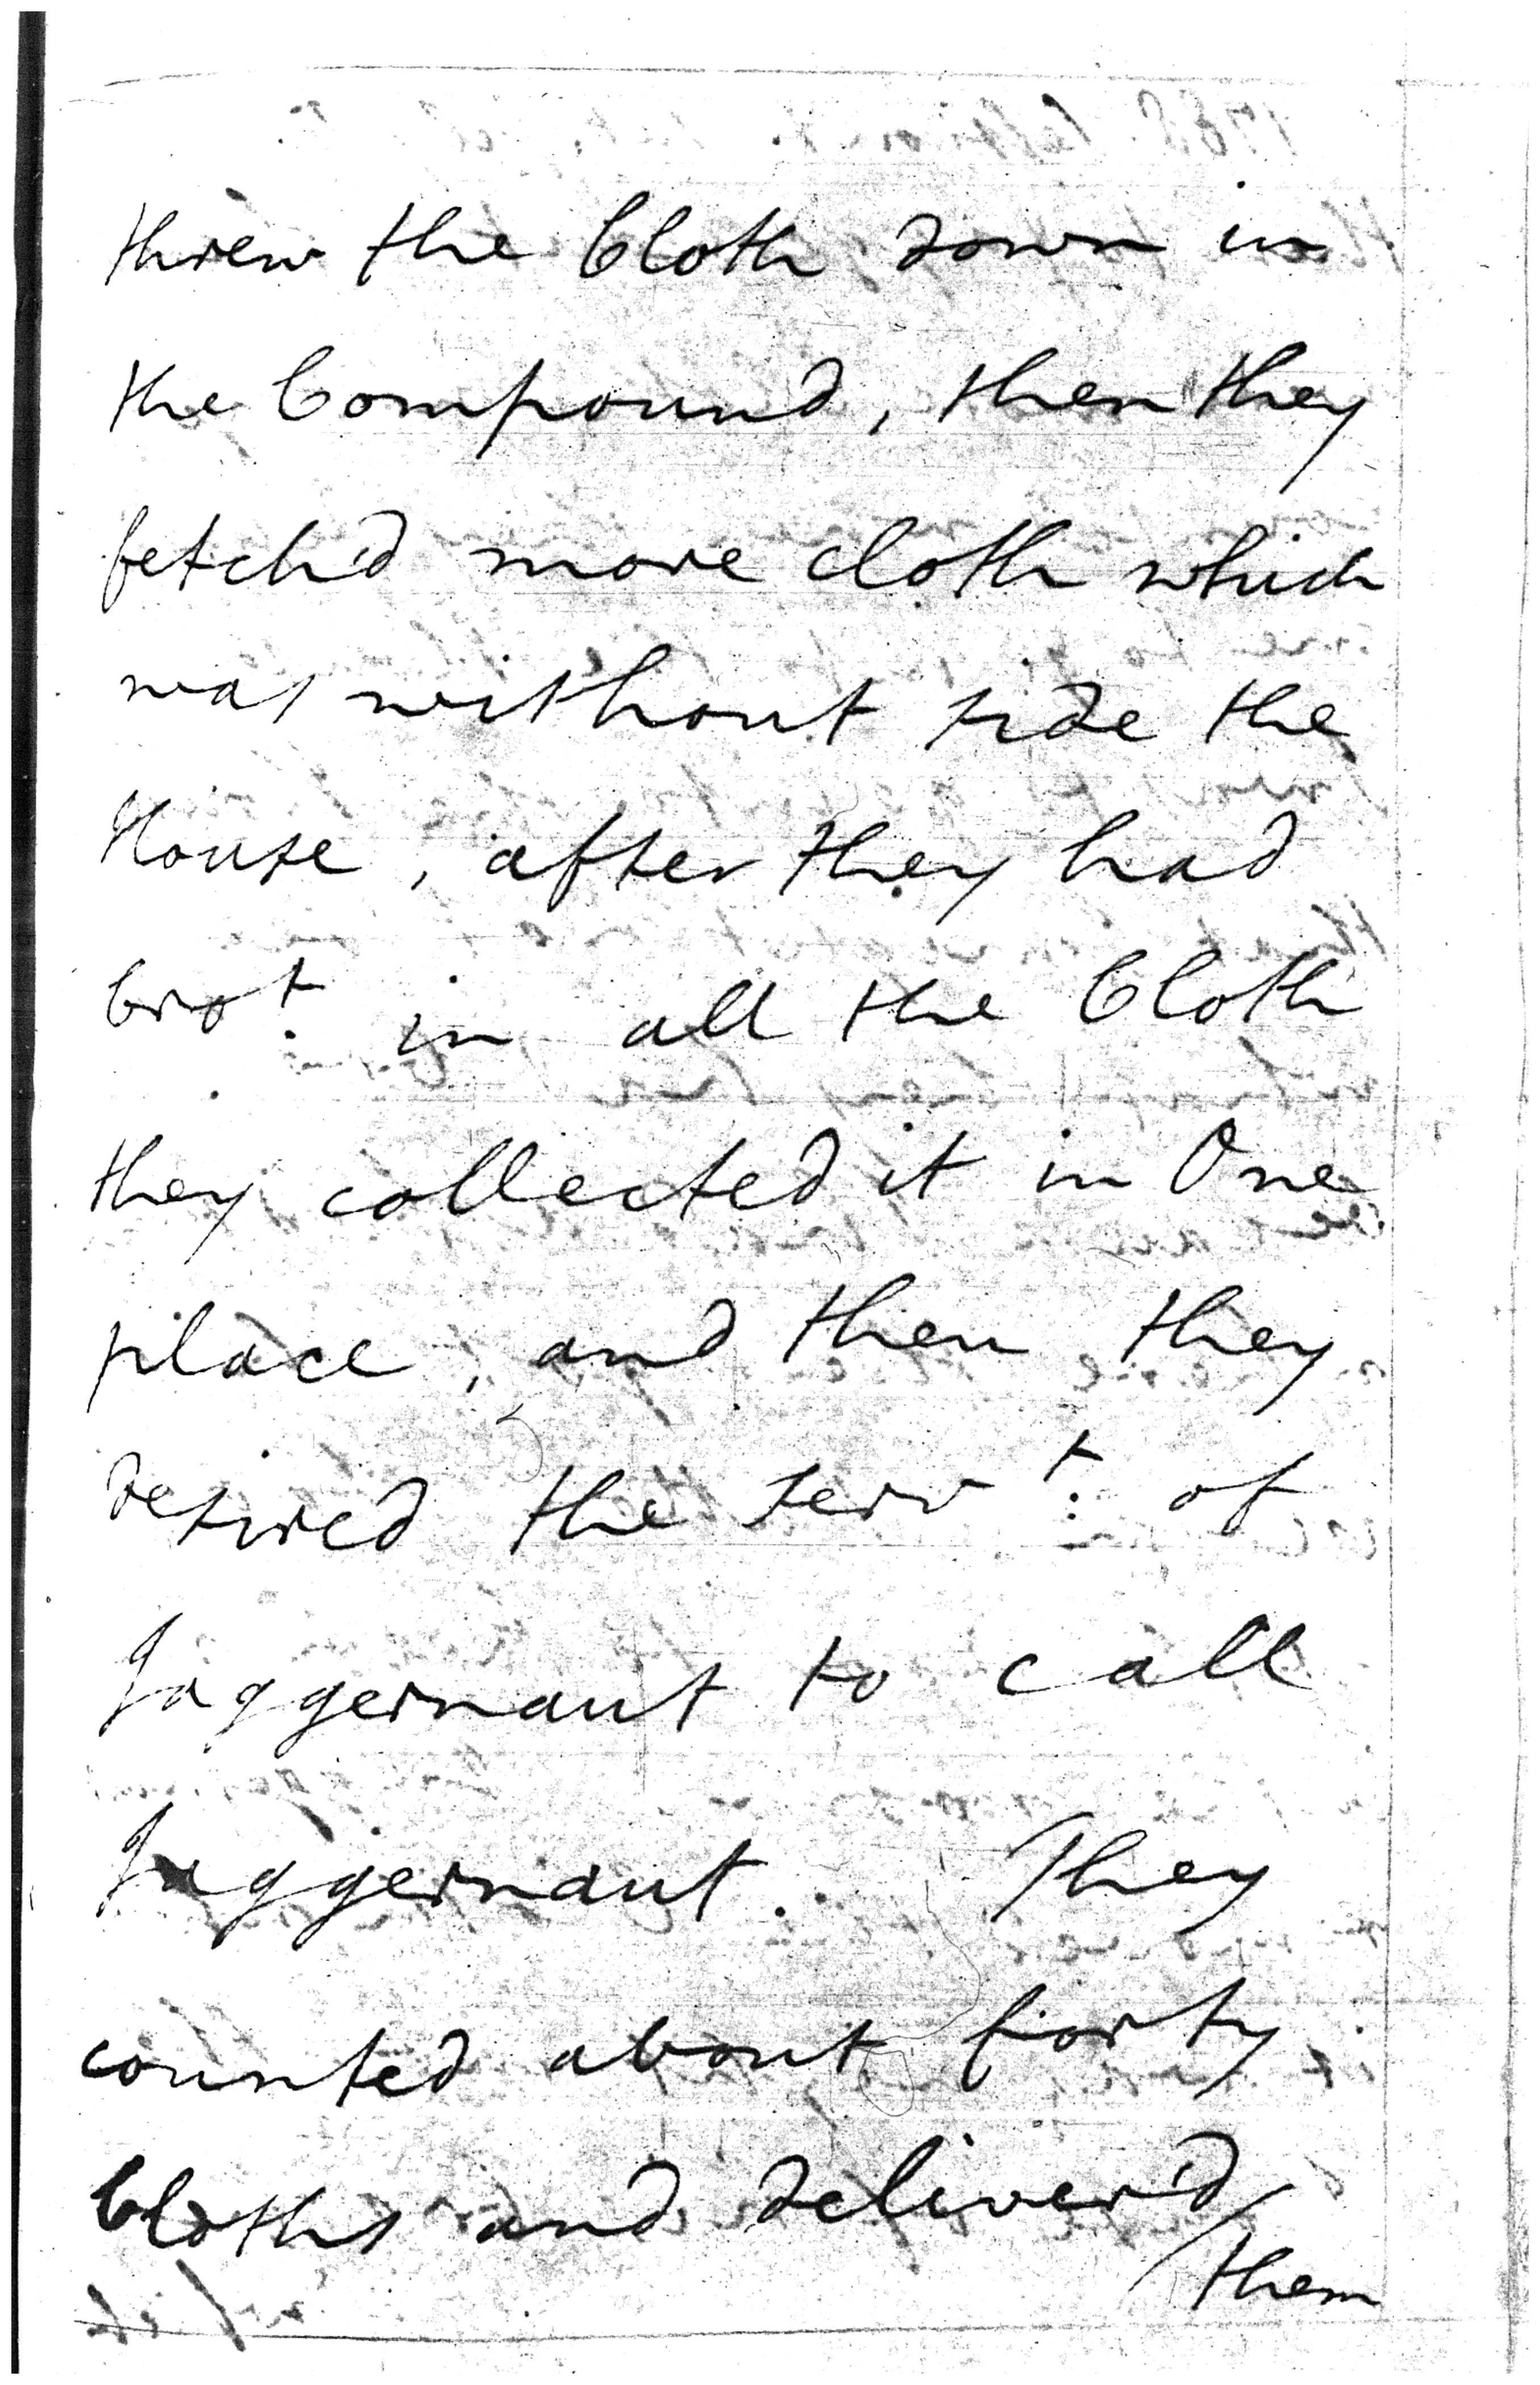 threw the Cloth down in
the Compound, then they
fetch'd more cloth which
was without side the
House, after they had
bro.t in all the Cloth
they collected it in One
place, and then they
desired the serv.t of
Jaggernaut to call
Jaggernaut. They
counted about forty
Cloths and deliver'd
them